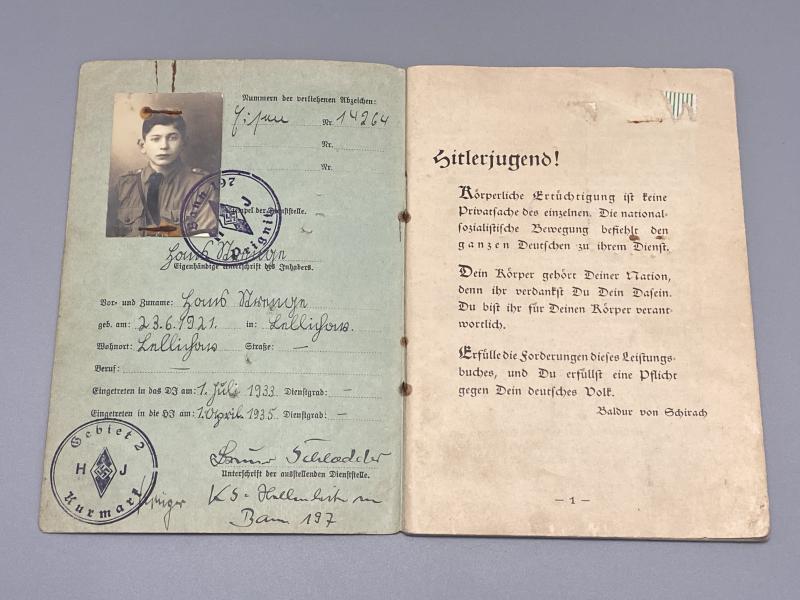 Nummern der verliehenen Abzeichen:
Eisen Nr. 14264
Nr.
Nr.
Bann 197
HJ
Prignitz
Stempel der Dienststelle.
Hans
Eigenhändige Unterschrift des Inhabers.
Vor- und Zuname: Hans
geb. am: 23.6.1921. in: Lellichow.
Wohnort: Lellichow Straße: —
Beruf: —
Eingetreten in das DJ am: 1. Juli 1933 Dienstgrad: —
Eingetreten in die HJ am: 1. April 1935 Dienstgrad: —
Gebiet 2
H J
Kurmark
Unterschrift der ausstellenden Dienststelle.
Bann 197
Hitlerjugend!
Körperliche Ertüchtigung ist keine
Privatsache des einzelnen. Die national-
sozialistische Bewegung befiehlt den
ganzen Deutschen zu ihrem Dienst.
Dein Körper gehört Deiner Nation,
denn ihr verdankst Du Dein Dasein.
Du bist ihr für Deinen Körper verant-
wortlich.
Erfülle die Forderungen dieses Leistungs-
buches, und Du erfüllst eine Pflicht
gegen Dein deutsches Volk.
Baldur von Schirach
— 1 —